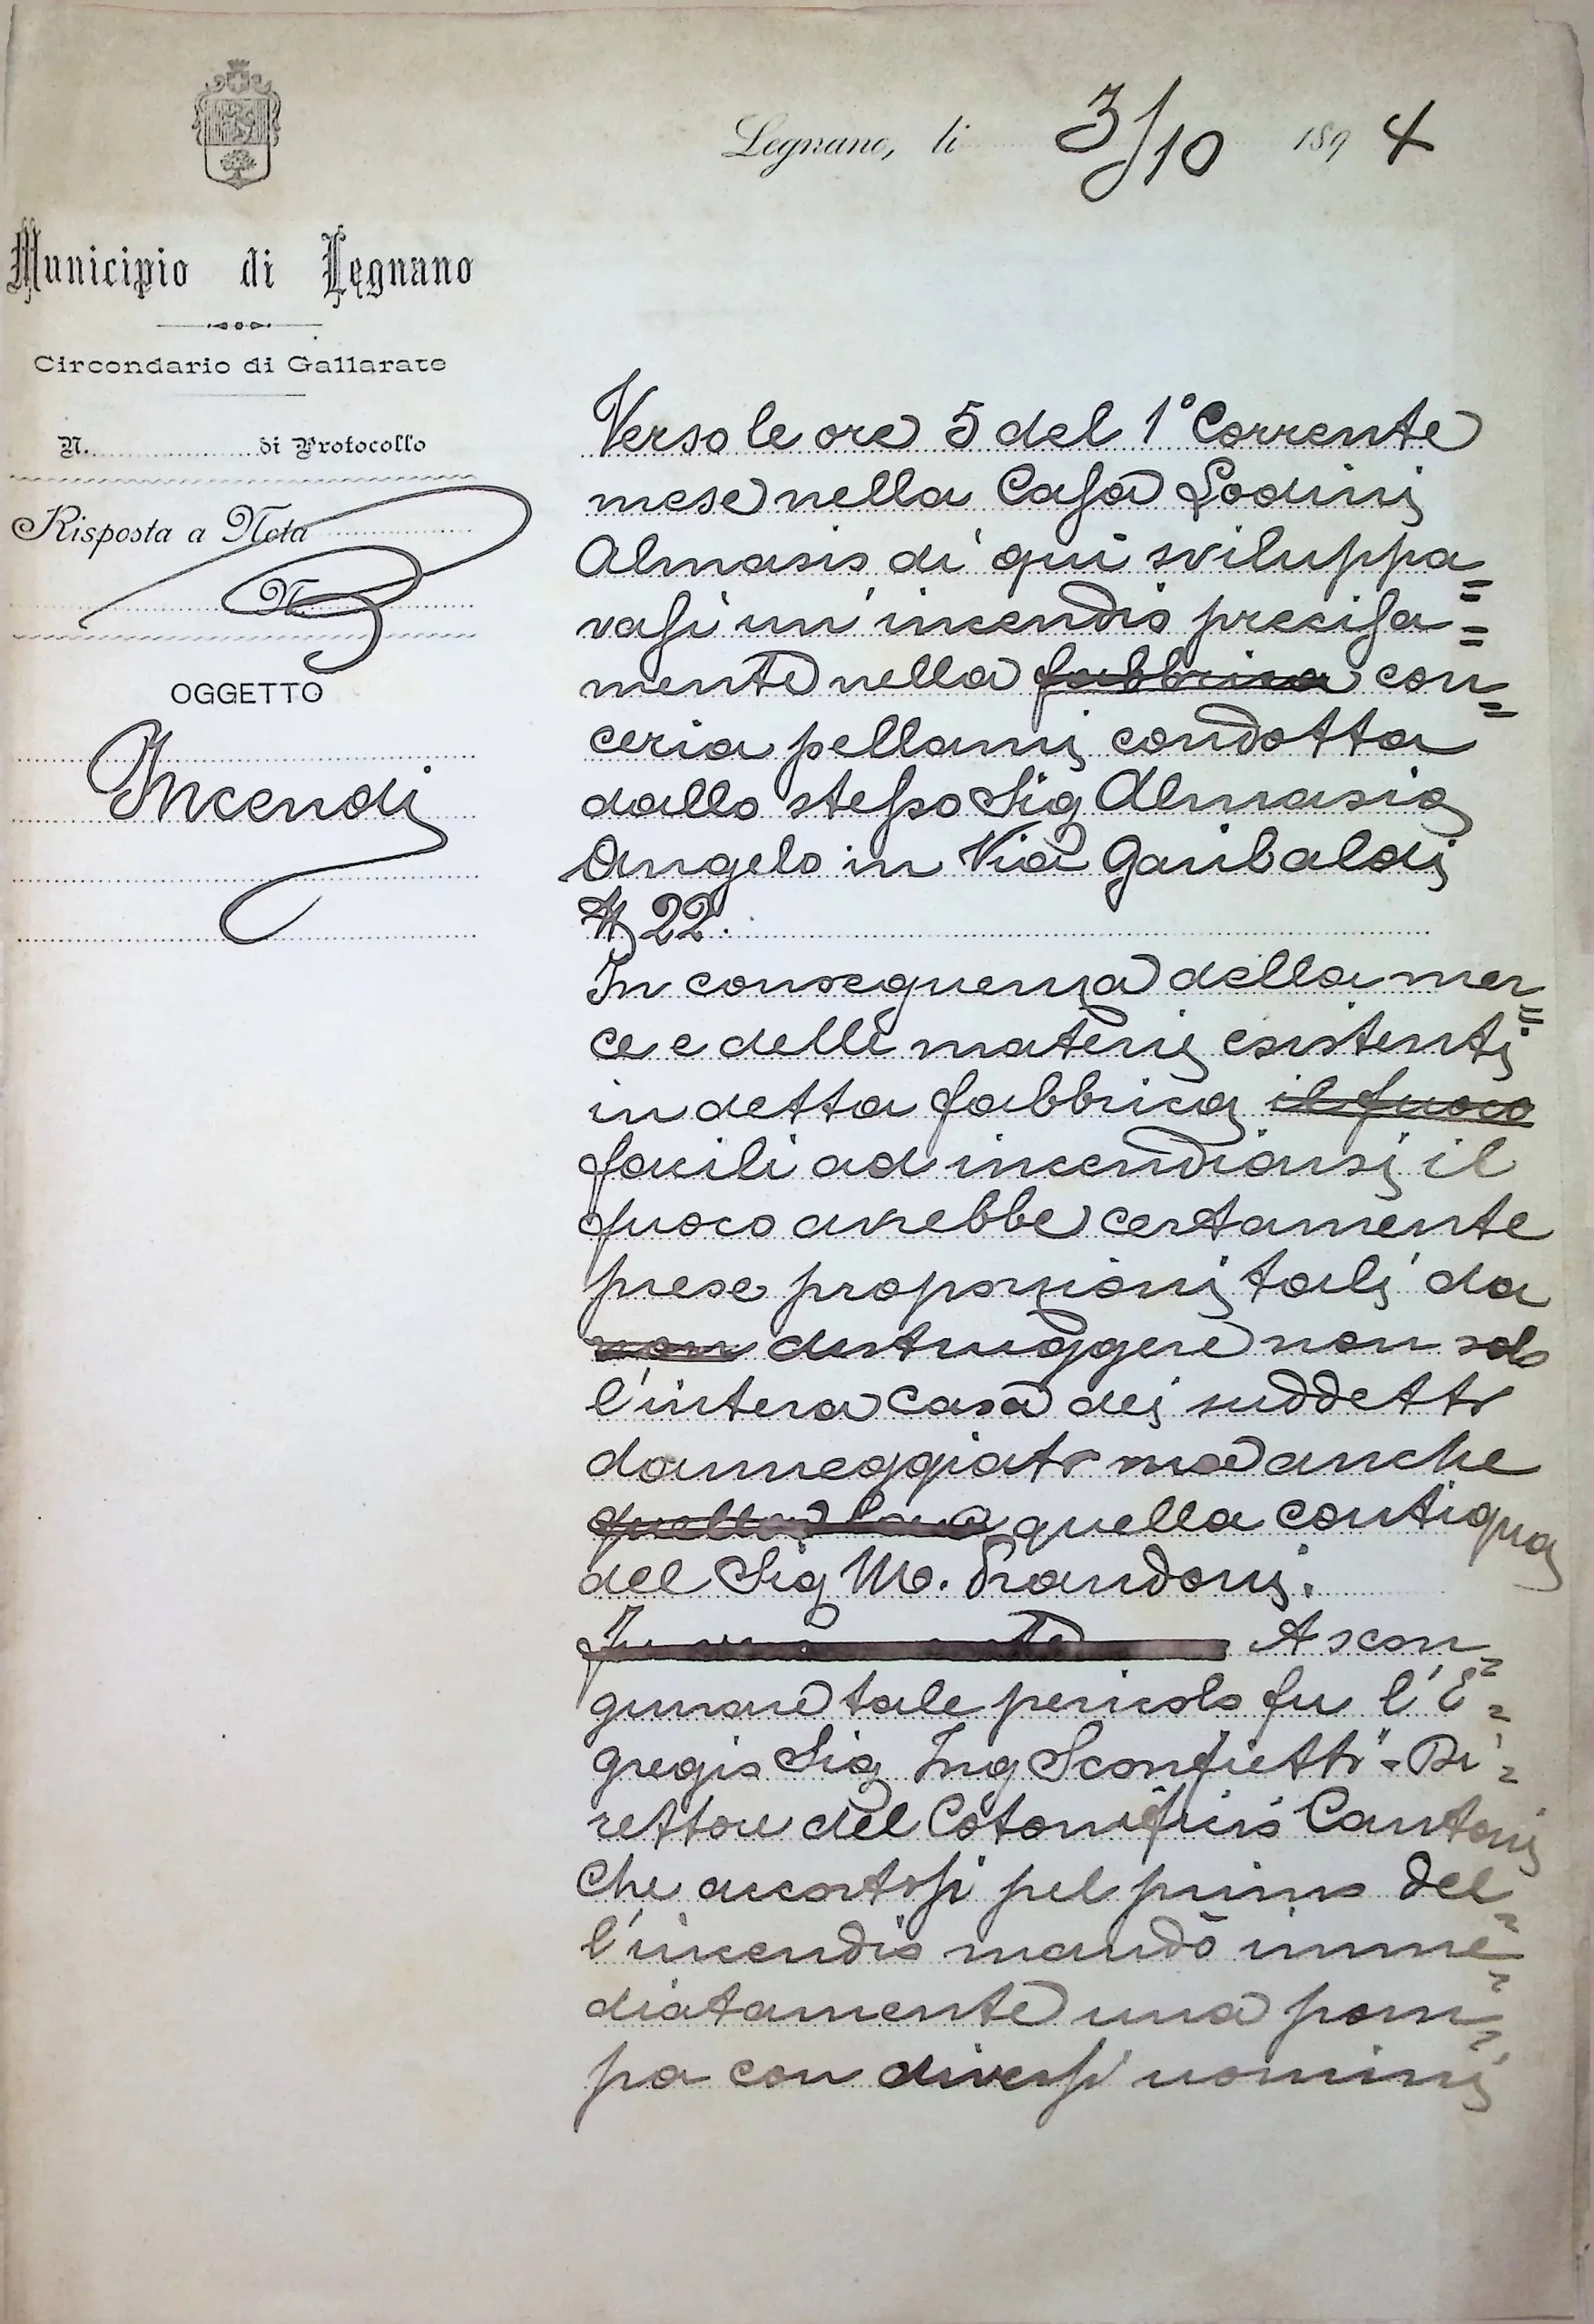 Legnano, li 3/10 1894
Municipio di Legnano
Circondario di Gallarate
N. di Protocollo
Risposta a Nota
N.
OGGETTO
Incendi
Verso le ore 5 del 1° Corrente
mese nella Casa Lodini
Almasio di qui sviluppa=
vasi un incendio precisa=
mente nella fabbrica con=
ceria pellami condotta
dallo stesso Sig Almasio
Angelo in Via Garibaldi
N 22.
In conseguenza della mer=
ce e delle materie esistenti
in detta fabbrica il fuoco
facili ad incendiarsi il
fuoco avrebbe certamente
prese proporzioni tali da
non distruggere non solo
l'intera casa dei suddetti
danneggiati ma anche
quella quella contigua
del Sig M. Prandoni.
A scon=
giurare tale pericolo fu l'E=
gregio Sig Ing Sconfietti - Di=
rettore del Cotonificio Cantoni
che accortosi pel primo del=
l'incendio mandò imme=
diatamente una pom=
pa con diversi uomini